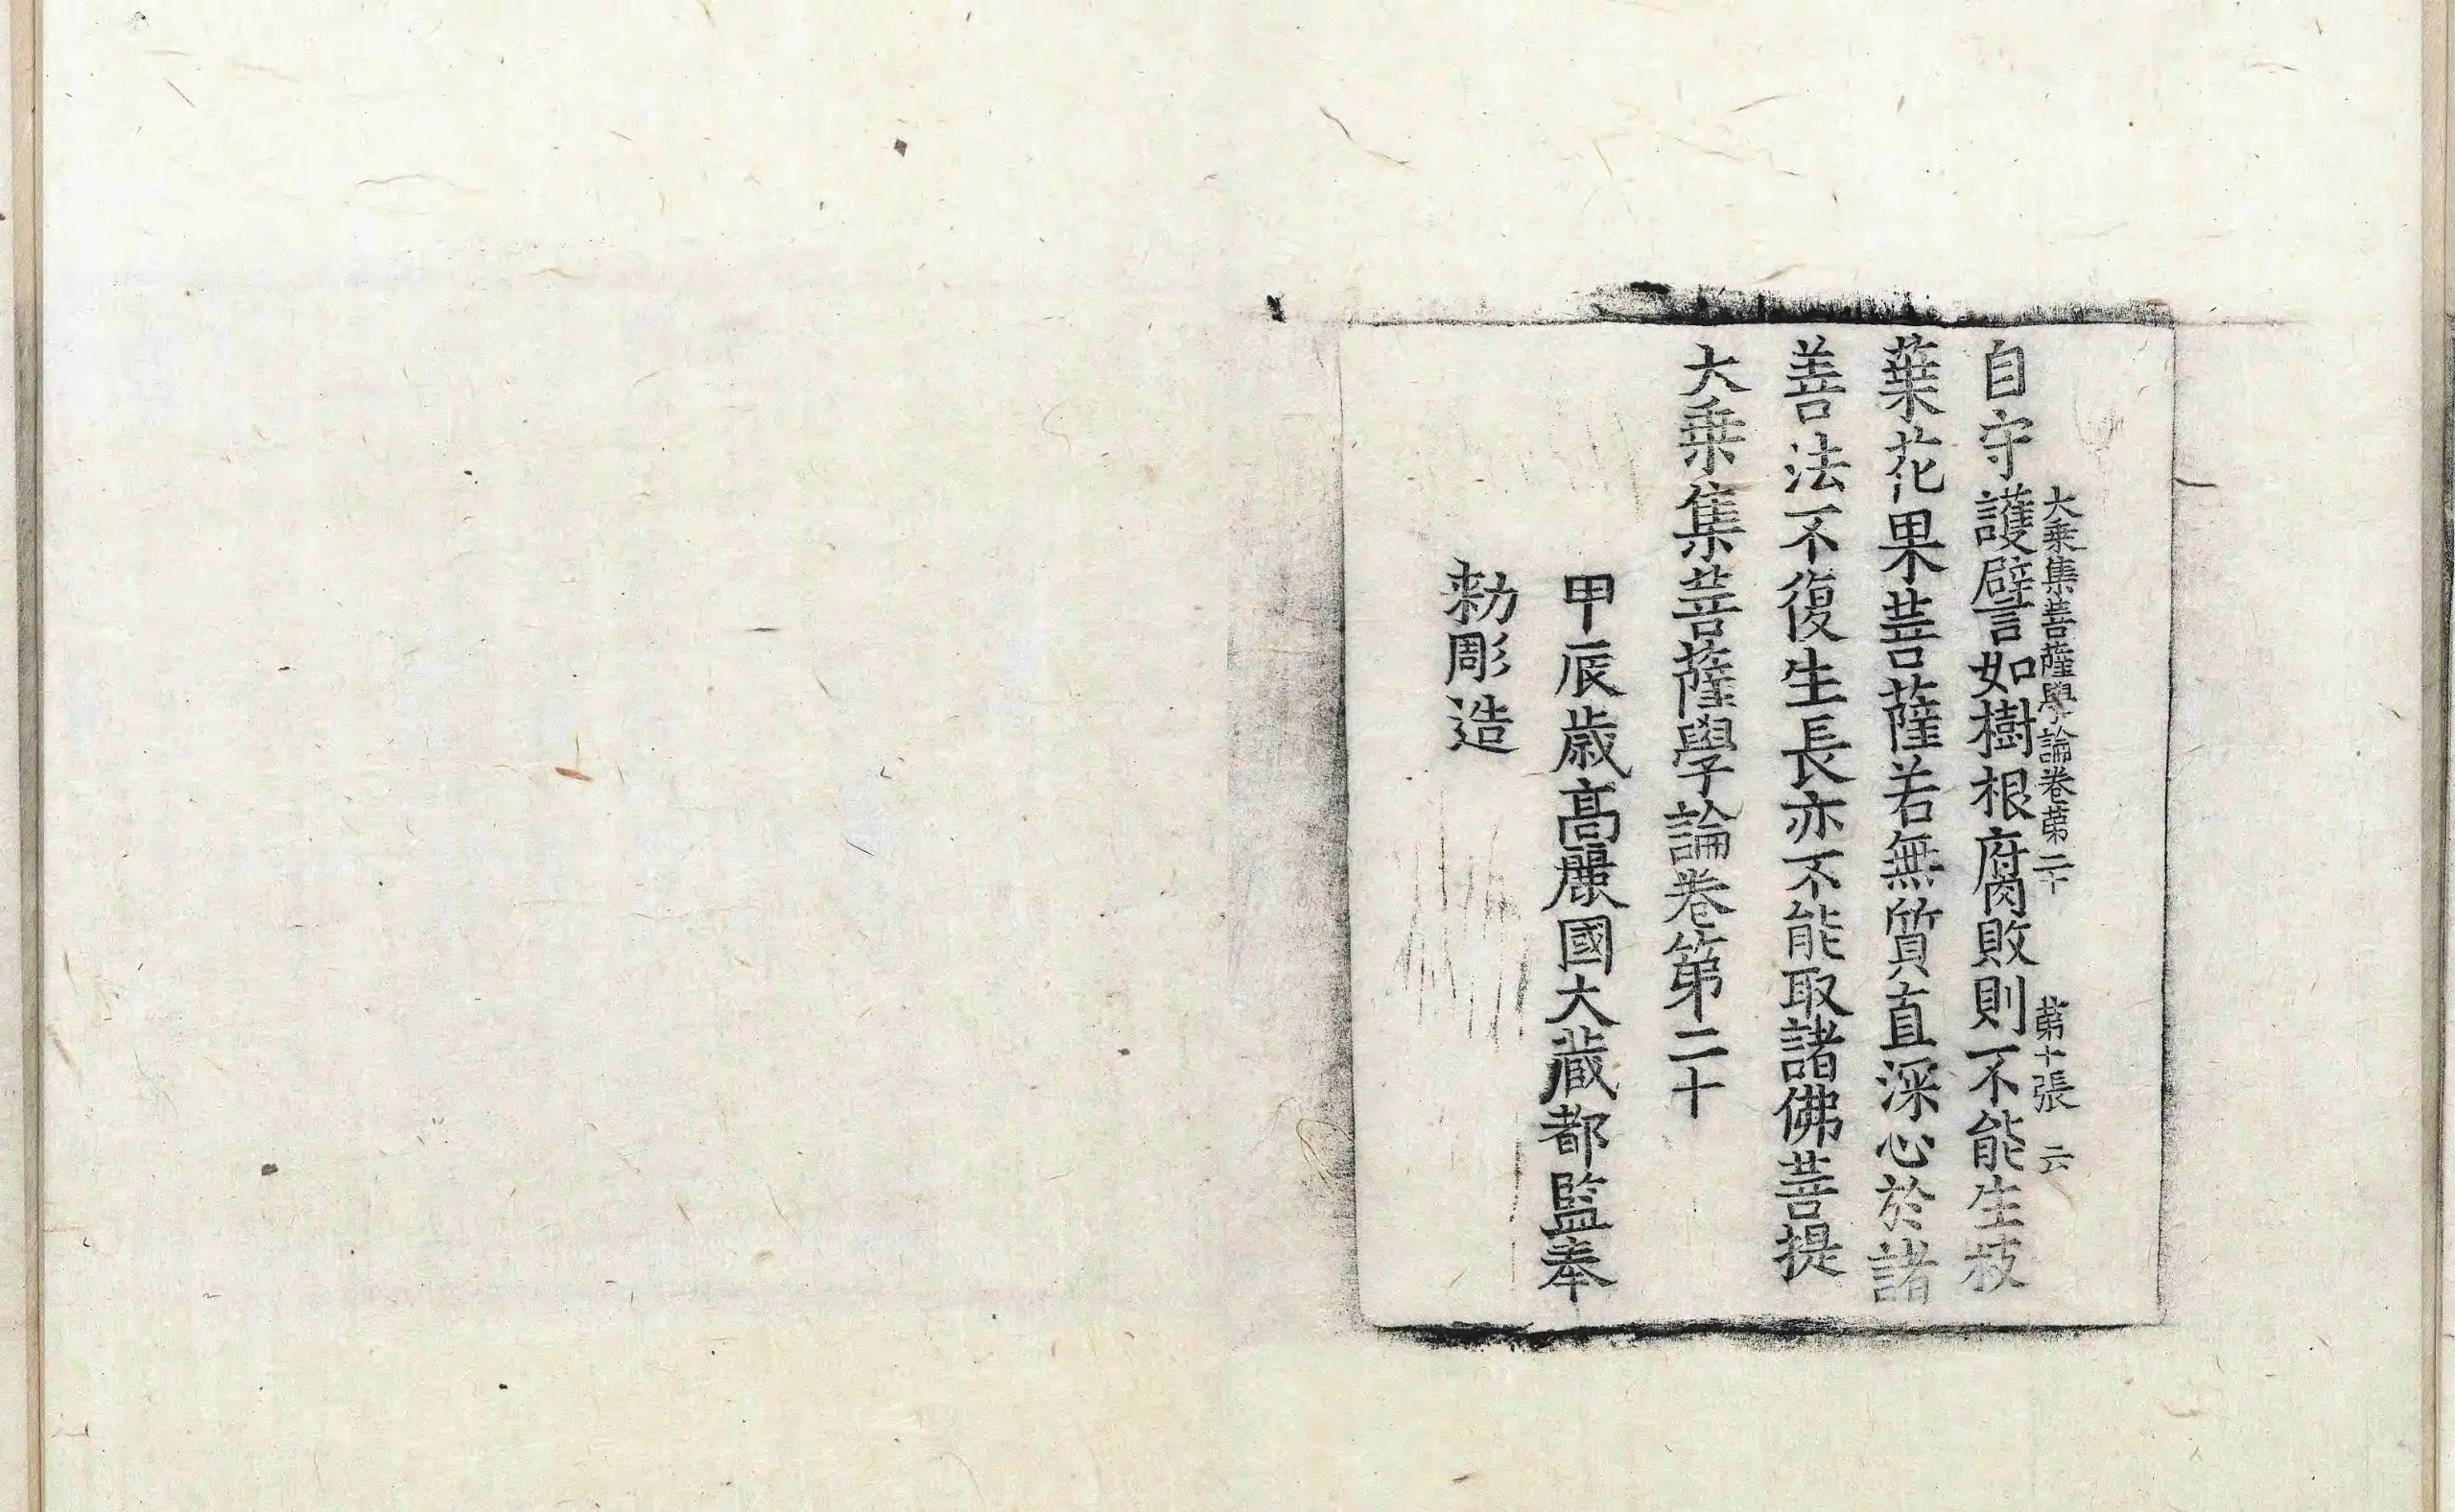 大乗集菩薩學論卷第二十 第十張 云
自守護譬如樹根腐敗則不能生枝
葉花果菩薩若無質直深心於諸
善法不復生長亦不能取諸佛菩提
大乗集菩薩學論卷第二十
甲辰歳高麗國大藏都監奉
勑彫造